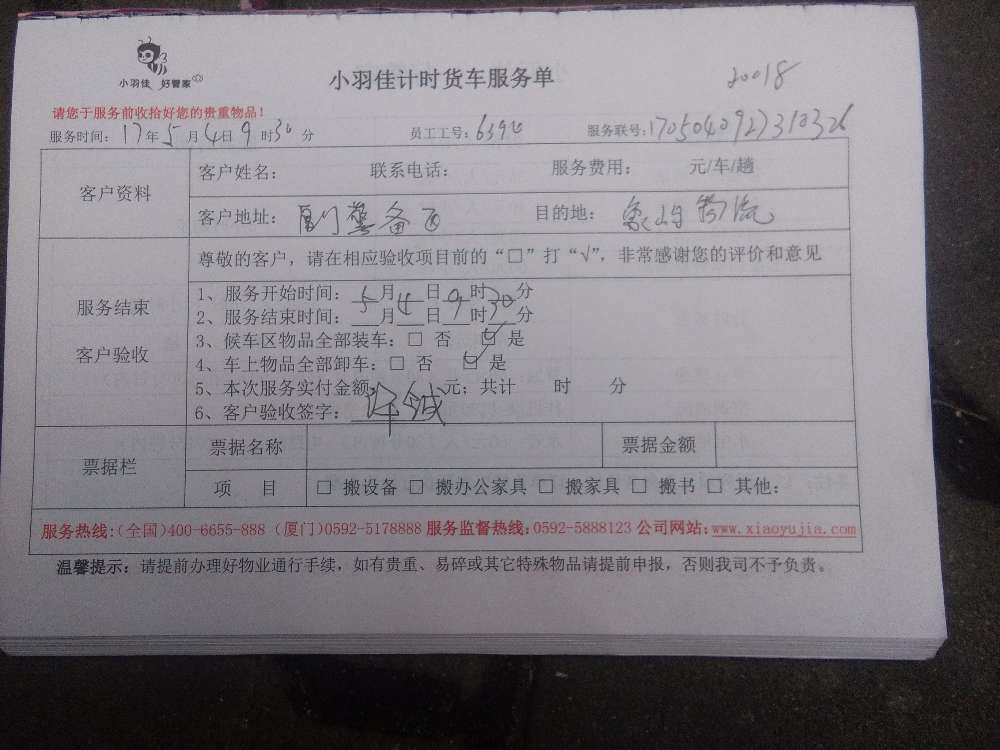 小羽佳 好管家
小羽佳计时货车服务单
20018
请您于服务前收拾好您的贵重物品！
服务时间：17年5月4日9时30分 员工工号：6394 服务联号：1705040927310326
客户资料
客户姓名： 联系电话： 服务费用： 元/车/趟
客户地址：厦门警备区 目的地：
服务结束
客户验收
尊敬的客户，请在相应验收项目前的“□”打“√”，非常感谢您的评价和意见
1、服务开始时间：5月4日9时30分
2、服务结束时间：___月___日___时___分
3、候车区物品全部装车：□ 否 ☑ 是
4、车上物品全部卸车：□ 否 ☑ 是
5、本次服务实付金额 元；共计 时 分
6、客户验收签字：许
票据栏
票据名称 票据金额
项 目 □ 搬设备 □ 搬办公家具 □ 搬家具 □ 搬书 □ 其他：
服务热线：(全国)400-6655-888 (厦门)0592-5178888 服务监督热线：0592-5888123 公司网站：www.xiaoyujia.com
温馨提示：请提前办理好物业通行手续，如有贵重、易碎或其它特殊物品请提前申报，否则我司不予负责。